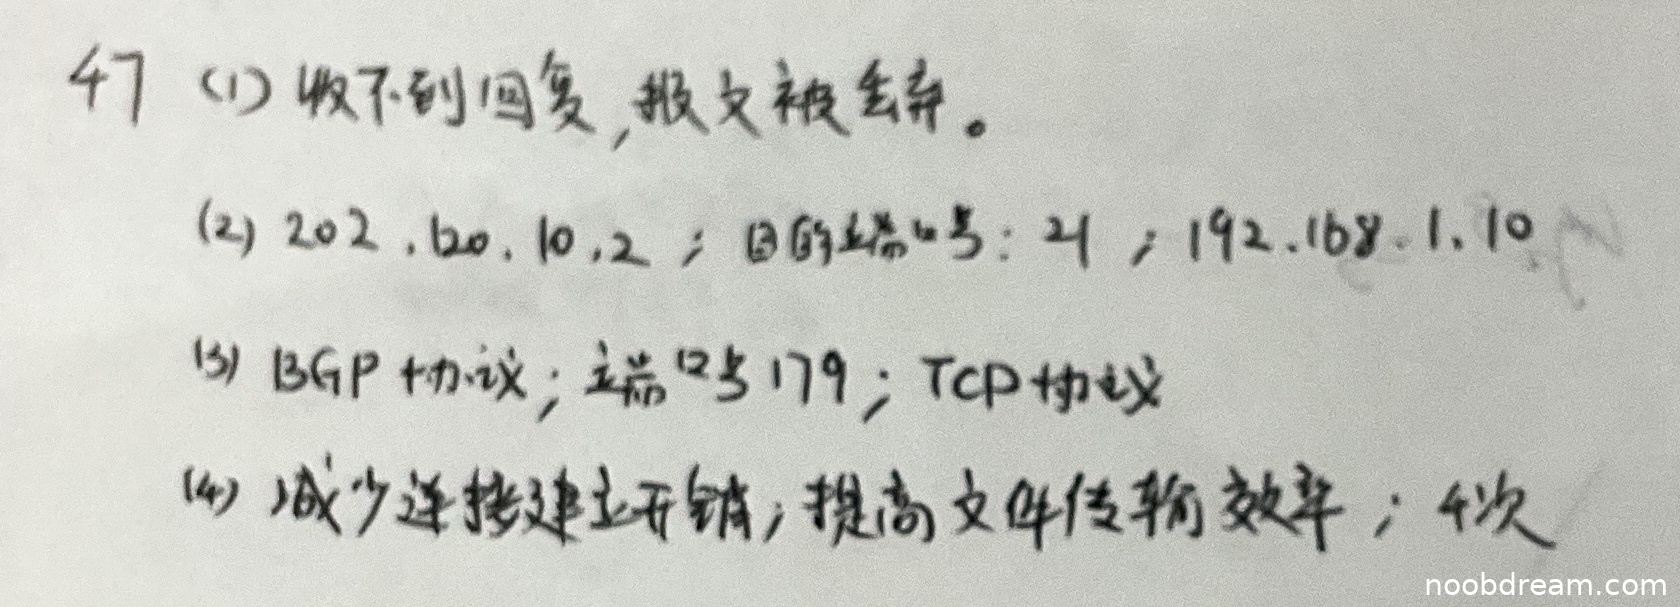 47 (1) 收不到回复,报文被丢弃。
(2) 202.120.10.2；目的端口号：21；192.168.1.10
(3) BGP协议；端口号179；TCP协议
(4) 减少连接建立开销；提高文件传输效率；4次
noobdream.com